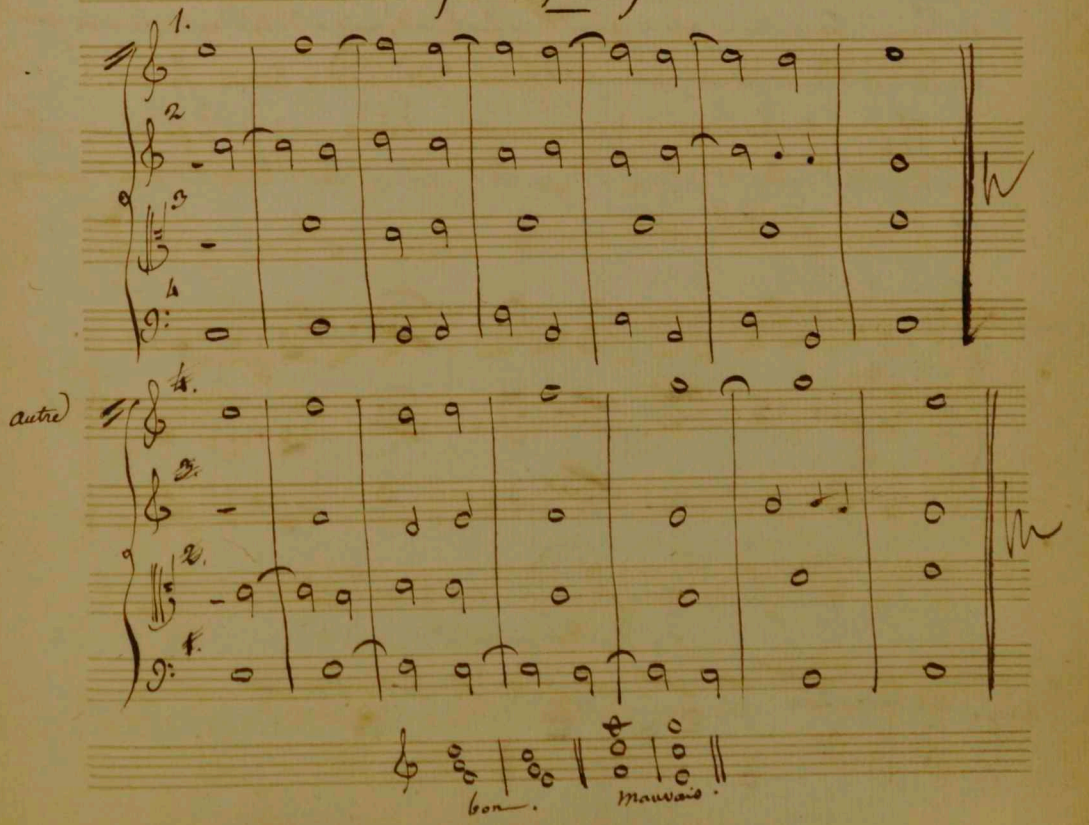 1.
2
3
4
autre
4.
3.
2.
1.
bon. mauvais.